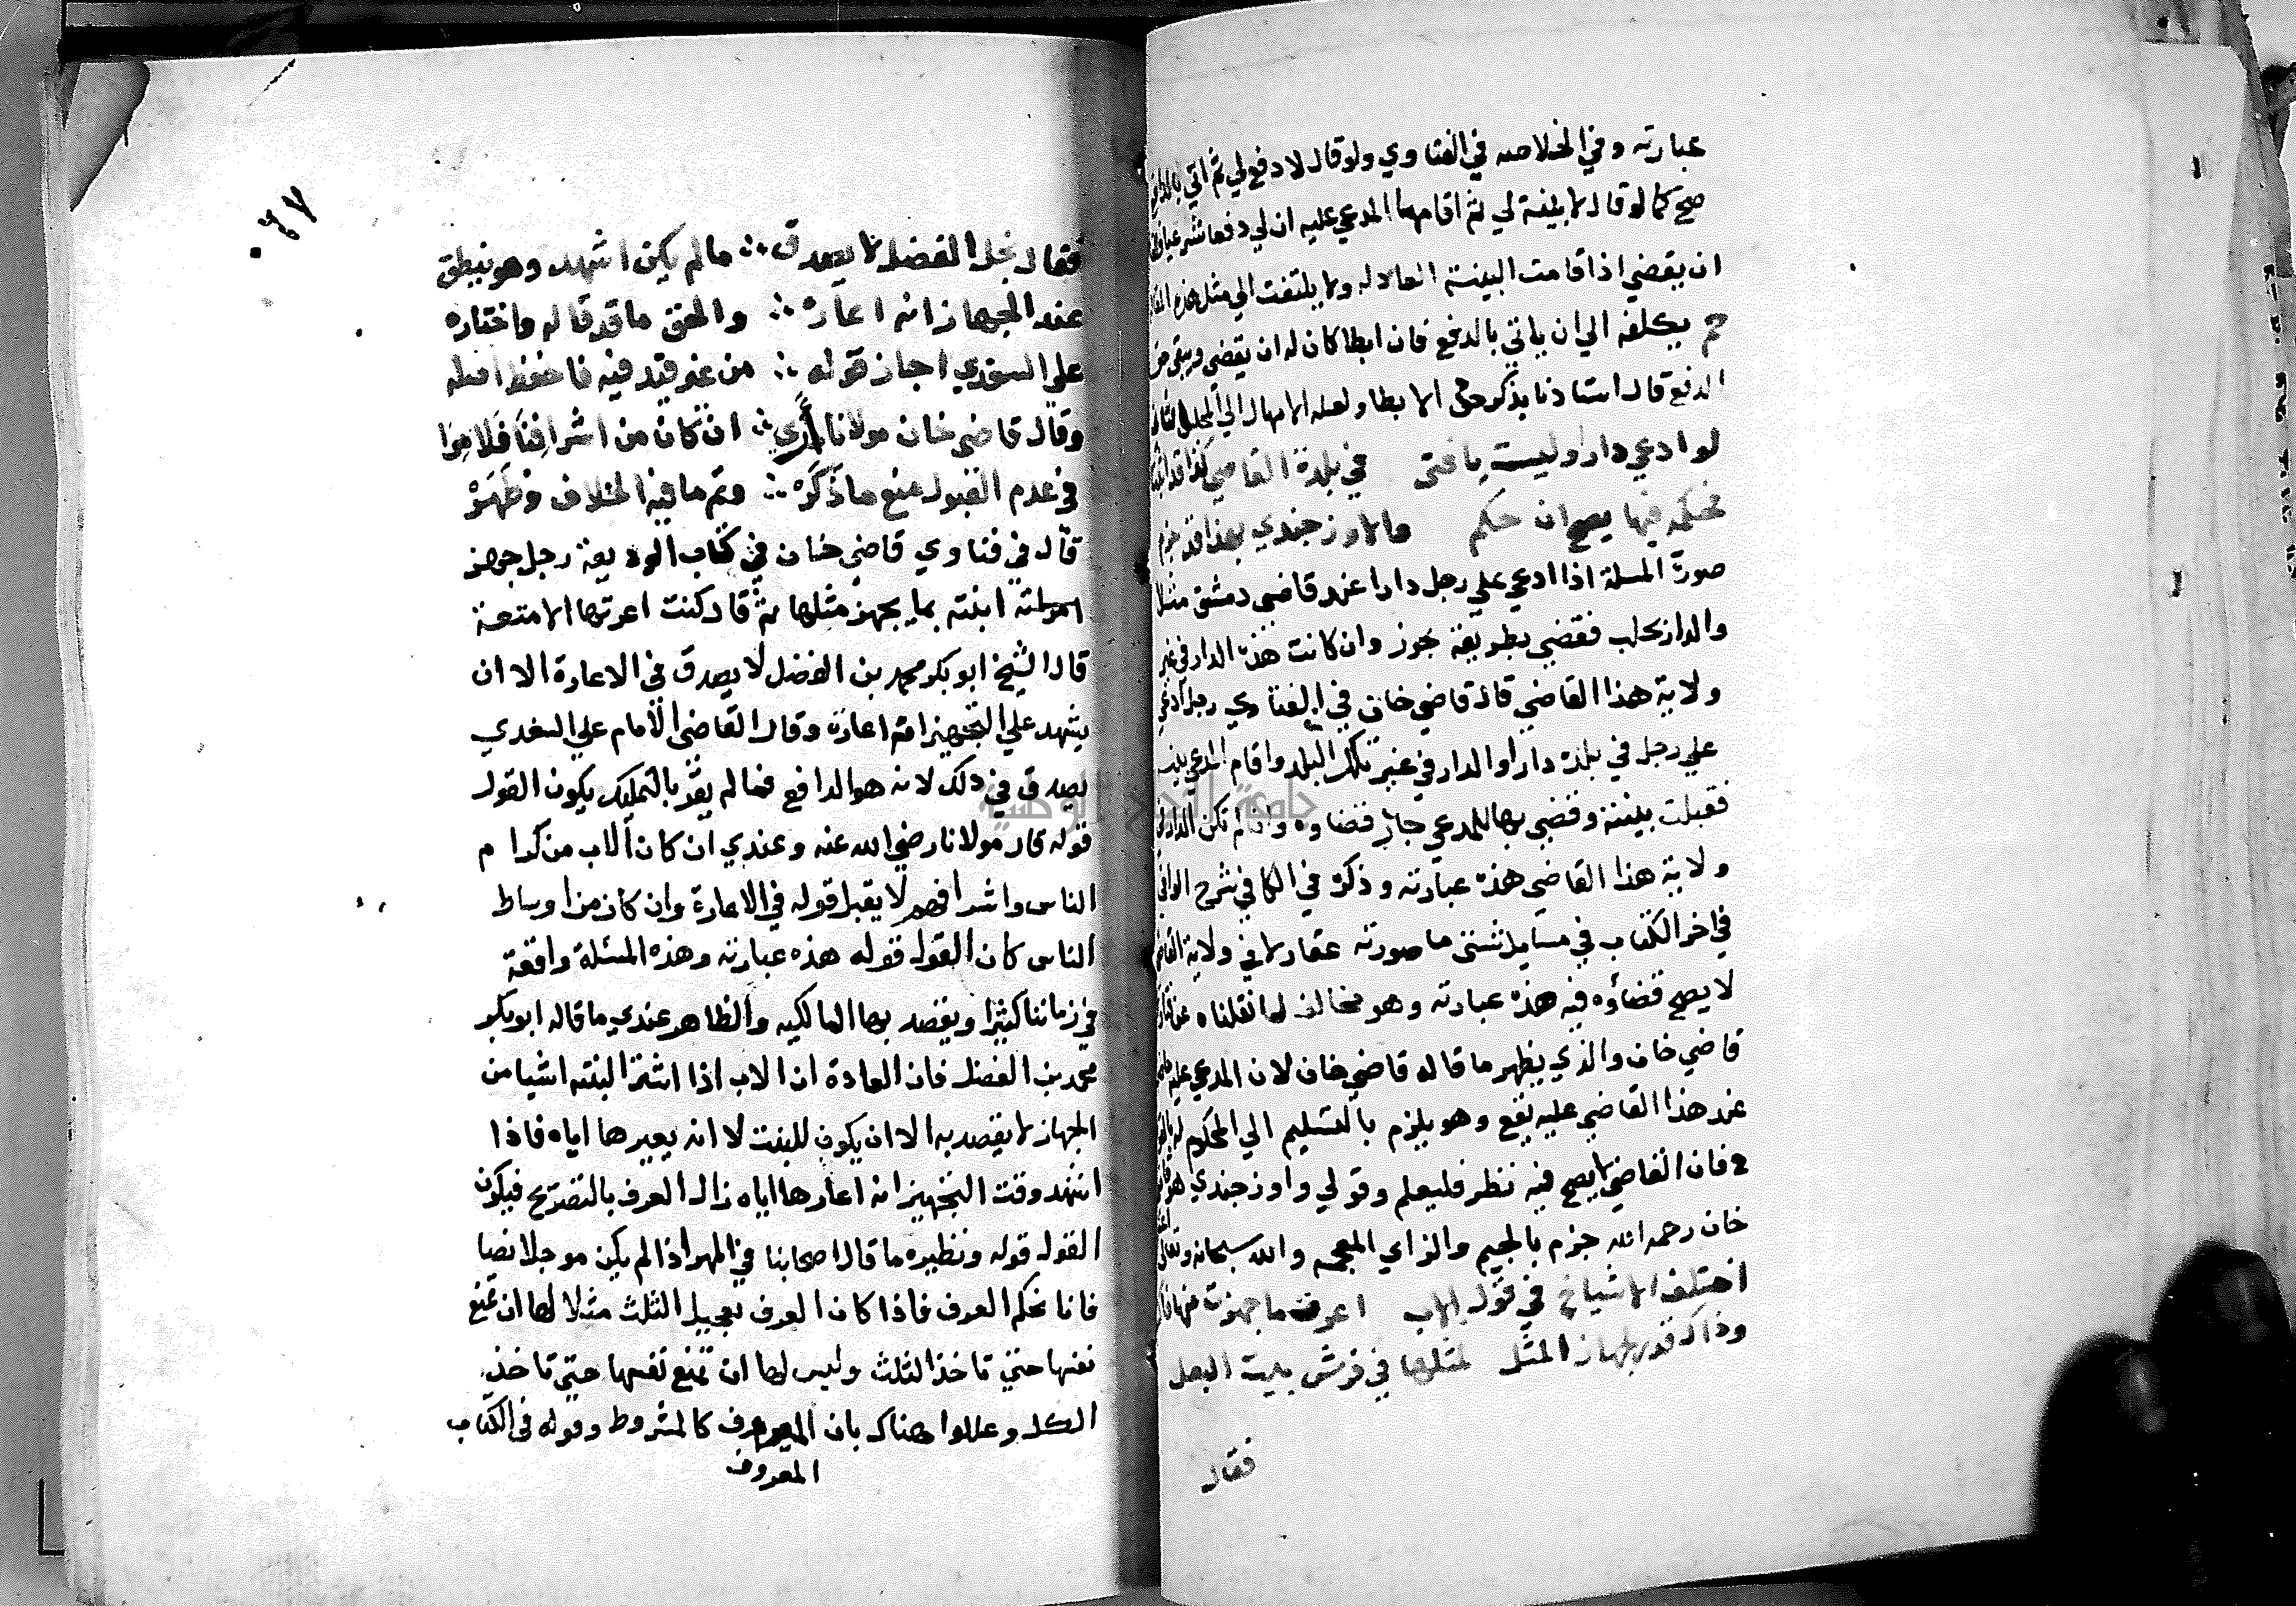 عبارته وفي الخلاصه في الفتاوي ولو قال لا دفع لي ثم اتي بالدفع
صح كما لو قال لا بينة لي ثم اقامها المدعي عليه ان لي دفعا شرعيا
ان يقضي اذا قامت البينة العادله ولا يلتفت الي مثل هذه
يكلفه الي ان ياتي بالدفع فان ابطا كان له ان يقضي ويبقي حق
الدفع قال استاذنا يذكر حتي الابطا ولعله الامهال الي المجلس الثاني
لو ادعي دارا وليست يا فتى في بلدة القاضي كذا قد اثبتا
محكمه فيها يصح ان حكم والاوزجندي بهذا قد جزم
صورة المسلة اذا ادعي علي رجل دارا عند قاضي دمشق مثلا
والدار بحلب فقضي بطريقة يجوز وان كانت هذه الدار في غير
ولاية هذا القاضي قال قاضي خان في الفتاوي رجل ادعي
علي رجل في بلدة دارا والدار في غير تلك البلد واقام المدعي بينه
فقبلت بينته وقضي بها للمدعي جاز قضاوه وان لم تكن الدار في
ولاية هذا القاضي هذه عبارته وذكر في الكافي شرح الوافي
في اخر الكتاب في مسايل شتي ما صورته عقار لا في ولاية القاضي
لا يصح قضاؤه فيه هذه عبارته وهو مخالف لما نقلناه عن
قاضي خان والذي يظهر ما قاله قاضي خان لان المدعي عليه
عند هذا القاضي عليه يقع وهو يلزم بالتسليم الي المحكوم له
فان القاضي لا يصح فيه نظر فليعلم وقولي واوزجندي هو
خان رحمه الله جزم بالجيم والزاي المعجمه والله سبحانه وتعالي
اختلف الاشياخ في قول الاب اعرت ما جهزت منها
وذاك قدر لجهاز المثل لمثلها في فرش بيت البعل
فقال
٠٦٧
فقال نجل الفضل لا يصدق ∴ ما لم يكن اشهد وهو ينطق
عند الجهاز انه اعاره ∴ والحق ما قد قاله واختاره
علي السغدي اجاز قوله ∴ من غير قيد فيه فاحفظ اصله
وقال قاضي خان مولانا ∴ ان كان من اشرافنا فلا مرا
في عدم القبول منع ما ذكره ∴ وتم ما فيه الخلاف وظهره
قال في فتاوي قاضي خان في كتاب الوديعة رجل جهز
ابنته بما يجهز مثلها ثم قال كنت اعرتها الامتعة
قال الشيخ ابو بكر محمد بن الفضل لا يصدق في الاعارة الا ان
يشهد علي التجهيز انه اعاره وقال القاضي الامام علي السغدي
يصدق في ذلك لانه هو الدافع فما لم يقر بالتمليك يكون القول
قوله قال مولانا رضي الله عنه وعندي ان كان الاب من كرام
الناس واشرافهم لا يقبل قوله في الاعارة وان كان من اوساط
الناس كان القول قوله هذه عبارته وهذه المسئلة واقعة
في زماننا كثيرا ويقصد بها المالكيه والظاهر عندي ما قاله ابو بكر
محمد بن الفضل فان العادة ان الاب اذا اشترا لبنته اشيا من
الجهاز لا يقصد به الا ان يكون للبنت لا انه يعيرها اياه فاذا
اشهد وقت التجهيز انه اعارها اياه زال العرف بالتصريح فيكون
القول قوله ونظيره ما قال اصحابنا في المهر اذا لم يكن موجلا نصا
فانا نحكم العرف فاذا كان العرف تعجيل الثلث مثلا لها ان تمنع
نفسها حتي تاخذ الثلث وليس لها ان تمنع نفسها حتي تاخذ
الكل وعللوا هناك بان المعروف كالمشروط وقوله في الكتاب
المعروف